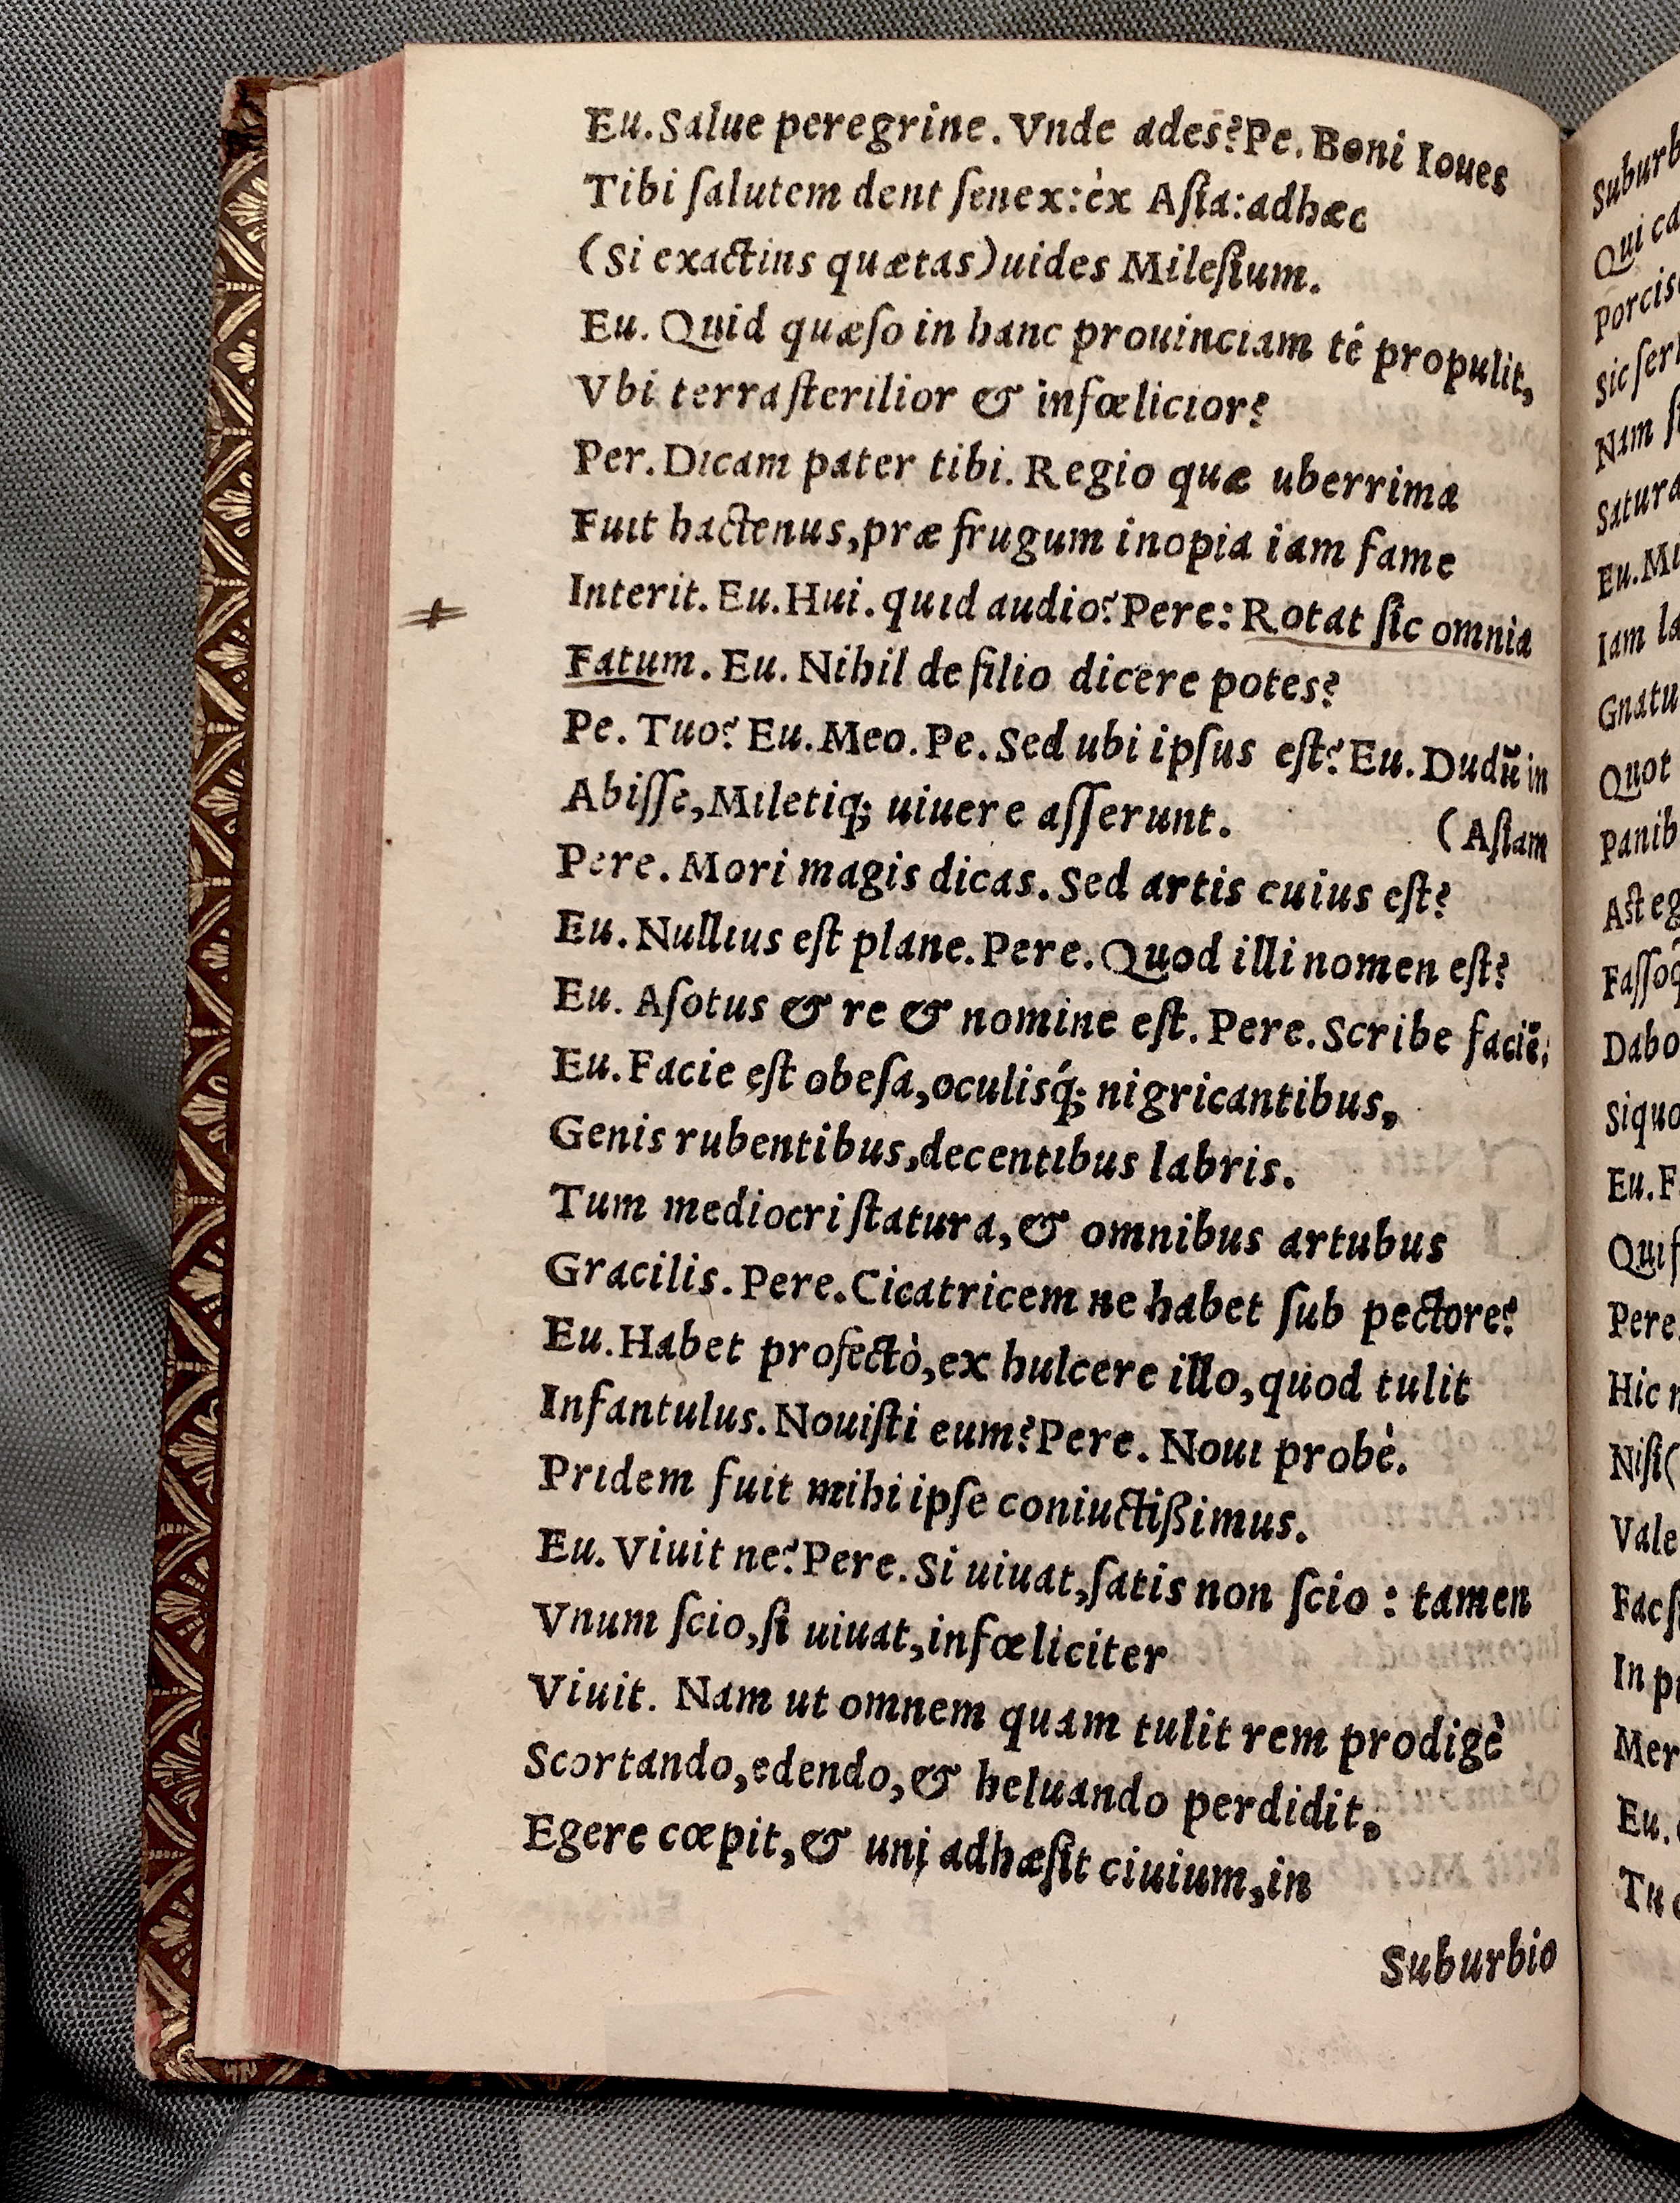 Eu. Salue peregrine. Vnde ades? Pe. Boni Ioues
Tibi ſalutem dent ſenex: èx Aſia: adhæc
(Si exactius quætas) uides Mileſium.
Eu. Quid quæſo in hanc prouinciam té propulit,
Vbi terra ſterilior & infœlicior?
Per. Dicam pater tibi. Regio quæ uberrima
Fuit hactenus, præ frugum inopia iam fame
Interit. Eu. Hui. quid audio? Pere: Rotat ſic omnia
Fatum. Eu. Nihil de filio dicere potes?
Pe. Tuo? Eu. Meo. Pe. Sed ubi ipſus eſt? Eu. Dudū in
Abiſſe, Miletiq; uiuere aſſerunt. (Aſiam
Pere. Mori magis dicas. Sed artis cuius eſt?
Eu. Nullius eſt plane. Pere. Quod illi nomen eſt?
Eu. Aſotus & re & nomine eſt. Pere. Scribe faciē.
Eu. Facie eſt obeſa, oculisq́; nigricantibus,
Genis rubentibus, decentibus labris.
Tum mediocri ſtatura, & omnibus artubus
Gracilis. Pere. Cicatricem ne habet ſub pectore?
Eu. Habet profectò, ex hulcere illo, quod tulit
Infantulus. Nouiſti eum? Pere. Noui probè.
Pridem fuit mihi ipſe coniuctißimus.
Eu. Viuit ne? Pere. Si uiuat, ſatis non ſcio: tamen
Vnum ſcio, ſi uiuat, infœliciter
Viuit. Nam ut omnem quam tulit rem prodigè
Scortando, edendo, & heluando perdidit.
Egere cœpit, & uni adhæſit ciuium, in
Suburbio
Suburb
Qui ca
Porcis
Sic ſer
Nam ſi
Satura
Eu. Mi
Iam la
Gnatu
Quot
Panib
Aſt eg
Faſſoq
Dabo
Siquo
Eu. F
Qui ſ
Pere
Hic n
Niſi (
Vale
Fac ſ
In p
Mer
Eu.
Tu